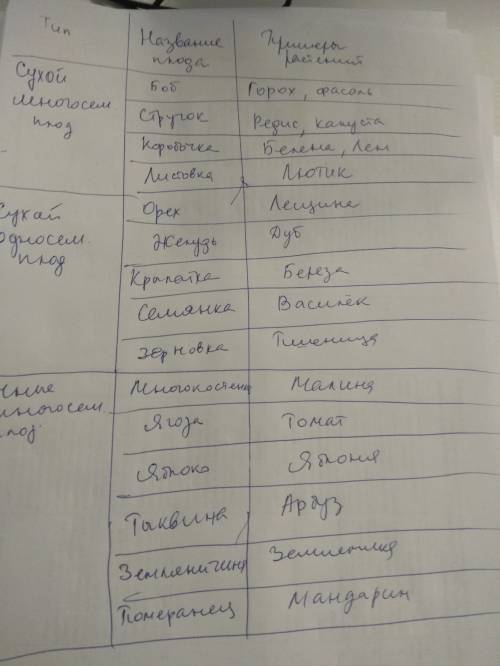 Тип
Название плода
Примеры растений
Сухой многосем. плод
Боб
Горох, фасоль
Стручок
Редис, капуста
Коробочка
Белена, Лён
Листовка
Лютик
Сухай односем. плод
Орех
Лещина
Желудь
Дуб
Крылатка
Береза
Семянка
Василёк
Зерновка
Пшеница
чные многосем. плод.
Многокостянка
Малина
Ягода
Томат
Яблоко
Яблоня
Тыквина
Арбуз
Земляничина
Земляника
Померанец
Мандарин